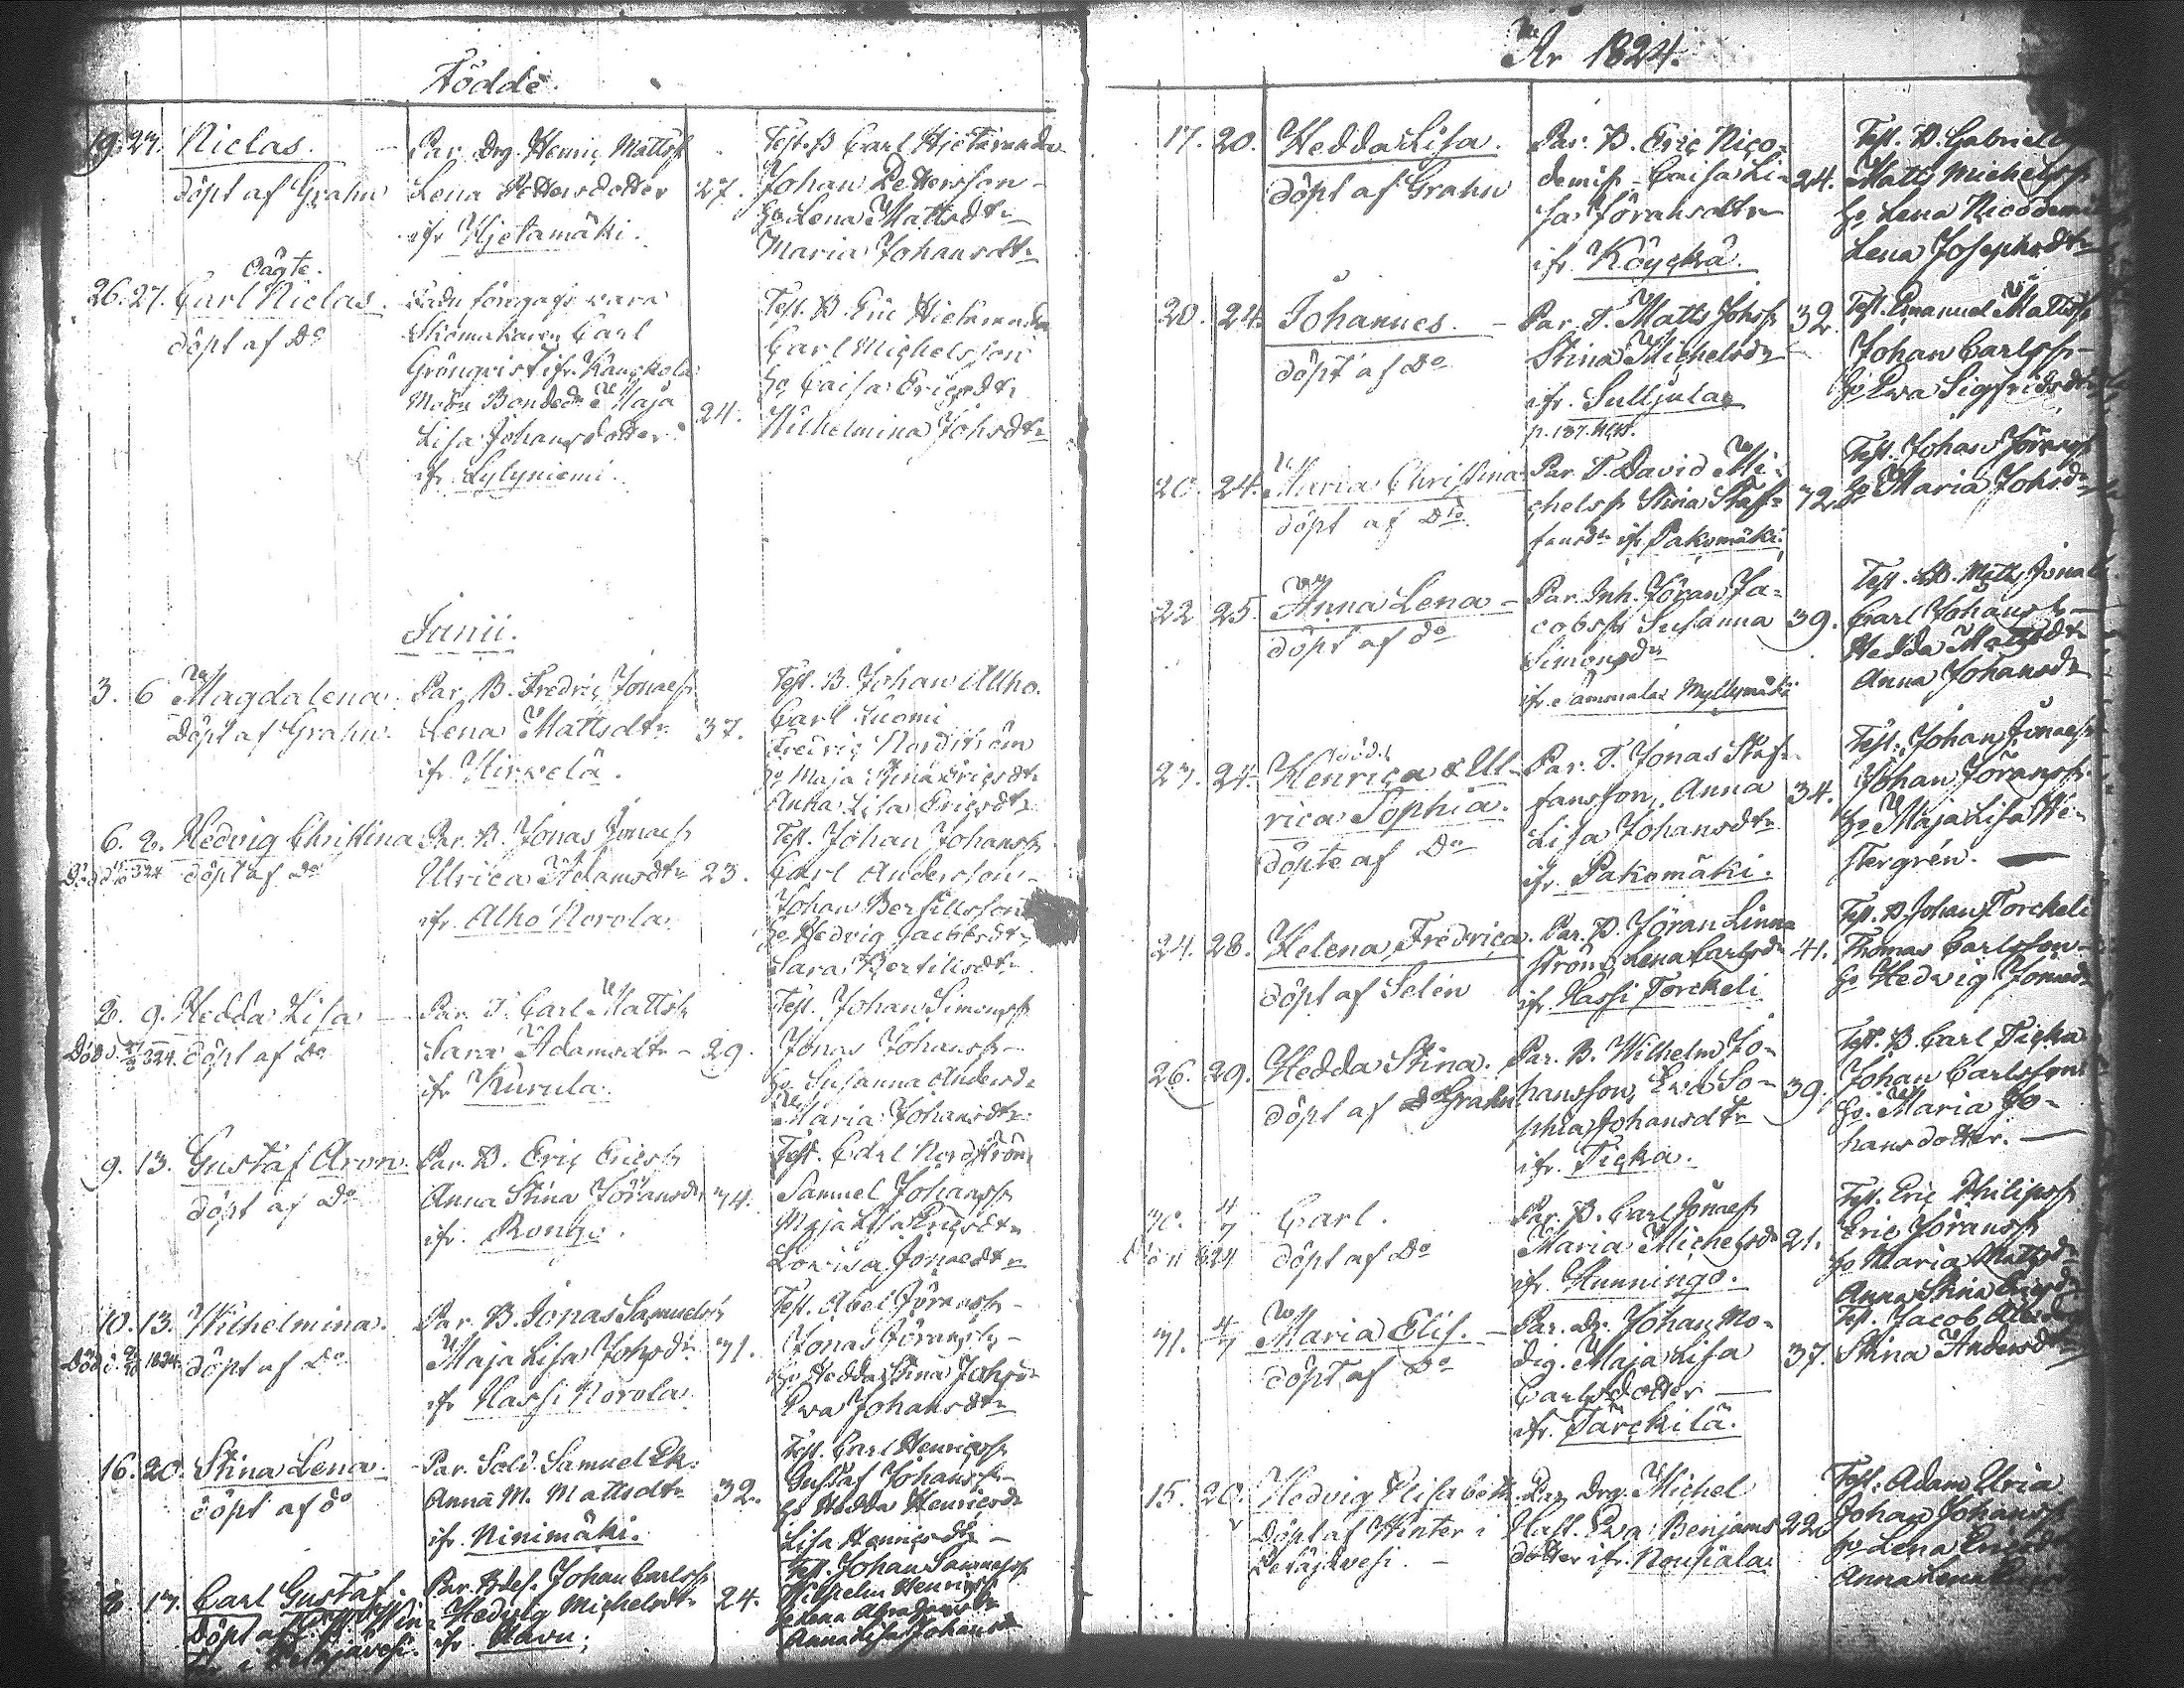 Födde.
19. 24. Niclas.
döpt af Grahn
Par. Drg. Henric Mattss
Lena Pettersdotter 27.
ifr. Hjetamäki.
Test. B. Carl
Johan Pettersson
Lena Mattsdtr
Maria Johansdtr
oägte.
26. 27. Carl Niclas.
döpt af Do
vara
Skomakaren Carl
Grönqvist ifr.
Maja
Lisa Johansdotter 24.
ifr. Lylyniemi.
Test. B. Eric
Carl Michelsson
Caisa Ericsdtr
Wilhelmina Johsdtr
Junii.
3. 6 Magdalena.
Döpt af Grahn.
Par. B. Fredric Jonaess
Lena Mattsdtr 37.
ifr. Hirvelä.
Test. B. Johan Alho.
Carl Luomi
Fredric Nordström
Maja Stina Ericsdtr
Anna Lisa Ericsdtr
6. 8. Hedvig Christina
döpt af Do
Par. B. Jonas Jonaess
Ulrica Adamsdtr 23.
ifr. Alho Norola.
Test. Johan Johanss
Carl Andersson
Johan Bertillsson
Hedvig Jacobsdtr
Sara Bertilisdtr
8. 9. Hedda Lisa
döpt af Do
Par. T. Carl Mattss
Sara Adamsdtr 29.
ifr Kurula.
Test. Johan Simonss
Jonas Johanss
Susanna Andersdr
Maria Johansdtr
9. 13. Gustaf Aron.
döpt af Do
Par. B. Eric Ericss
Anna Stina Joransdr 34.
ifr. Rongo.
Test. Carl Nordström
Samuel Johanss
Maja Lisa Ericsdtr
Lovisa Jonaedtr
10. 13. Wilhelmina.
döpt af Do
Par. B. Jonas Samuelss
Maja Lisa Johsdr 31.
ifr Hassi Norola.
Test. Abel Jöranss
Jonas Göranss
Hedda Stina Johsdr
Eva Johansdtr
16. 20. Stina Lena.
döpt af do
Par. Sold. Samuel Ek.
Anna M. Mattsdtr 32.
ifr. Ninimäki.
Test. Carl Henricss
Gustaf Johanss
Hedda Henricsdr
Lisa Henricsdtr
8. 17. Carl Gustaf.
Döpt af
Par. Johan Carlss
Hedvig Michelsdtr 24.
ifr Havu.
Test. Johan Samuelss
Wilhelm Henricss
Lena
Anna Lisa Johansdr
År 1824.
17. 20. Hedda Lisa.
döpt af Grahn
Par. B. Eric Nico-
demiss Caisa Li- 24.
sa Joransdtr
ifr. Köyckä.
Test. B. Gabriel
Matts Michelss
Lena Nicodemi
Lena Josephsdtr
20. 24. Johannes.
döpt af Do
Par. T. Matts Johss 32.
Stina Michelsdr
ifr. Sulljula
p. 187.
Test. Emanuel Mattss
Johan Carlss
Eva Sigfridsdtr
20. 24. Maria Christina
döpt af Do
Par. T. David Mi-
chelss Stina Staf- 32.
fansdr ifr Pakomäki.
Test. Johan Jöranss
Maria Johsdr
22 25. Anna Lena
döpt af do
Par. Inh. Jöran Ja-
cobss Susanna 39.
Simonsdr
ifr. Sammalas Myllymäki
Test. B. Matts Jonae
Carl Johanss
Hedda Mattsdtr
Anna Johansdr
23. 24. Henrica & Ul-
rica Sophia.
döpte af Do
Par. T. Jonas Staf-
fansson, Anna 34.
Lisa Johansdtr
ifr. Pakomäki.
Test. Johan Jonaess
Johan Jöranss
Maja Lisa We-
stergrén.
24. 28. Helena Fredrica.
döpt af Selén
Par. B. Jöran Linna
ström, Lena Carlsdr 41.
ifr. Hassi Torckeli
Test. B. Johan Torckeli
Thomas Carlsson
Hedvig Jonaedr
26. 29. Hedda Stina.
döpt af Grahn
Par. B. Wilhelm Jo-
hansson, Eva So- 39.
phia Johansdtr
ifr. Ticka.
Test. B. Carl Ticka
Johan Carlsson
Maria Jo-
hansdotter.
30. 4/7 Carl.
döpt af Do
Par. B. Carl Jonaess
Maria Michelsdr 21.
ifr. Hunningo.
Test. Eric Philipss
Eric Jöranss
Maria Mattsdr
Anna Stina Ericsdr
31. 4/7 Maria Elis.
döpt af Do
Par. Dr. Johan Mo-
dig. Maja Lisa 37.
Carlsdotter
ifr. Tärckilä.
Test. Jacob
Stina Andersdtr
15. 20. Hedvig Elisabeth
Döpt af Winter i
Petäjävesi.
Par. Drg. Michel
Hast. Eva Benjams 22
dotter ifr. Nousiala.
Test. Adam Uria
Johan Johanss
Lena
Anna Lena